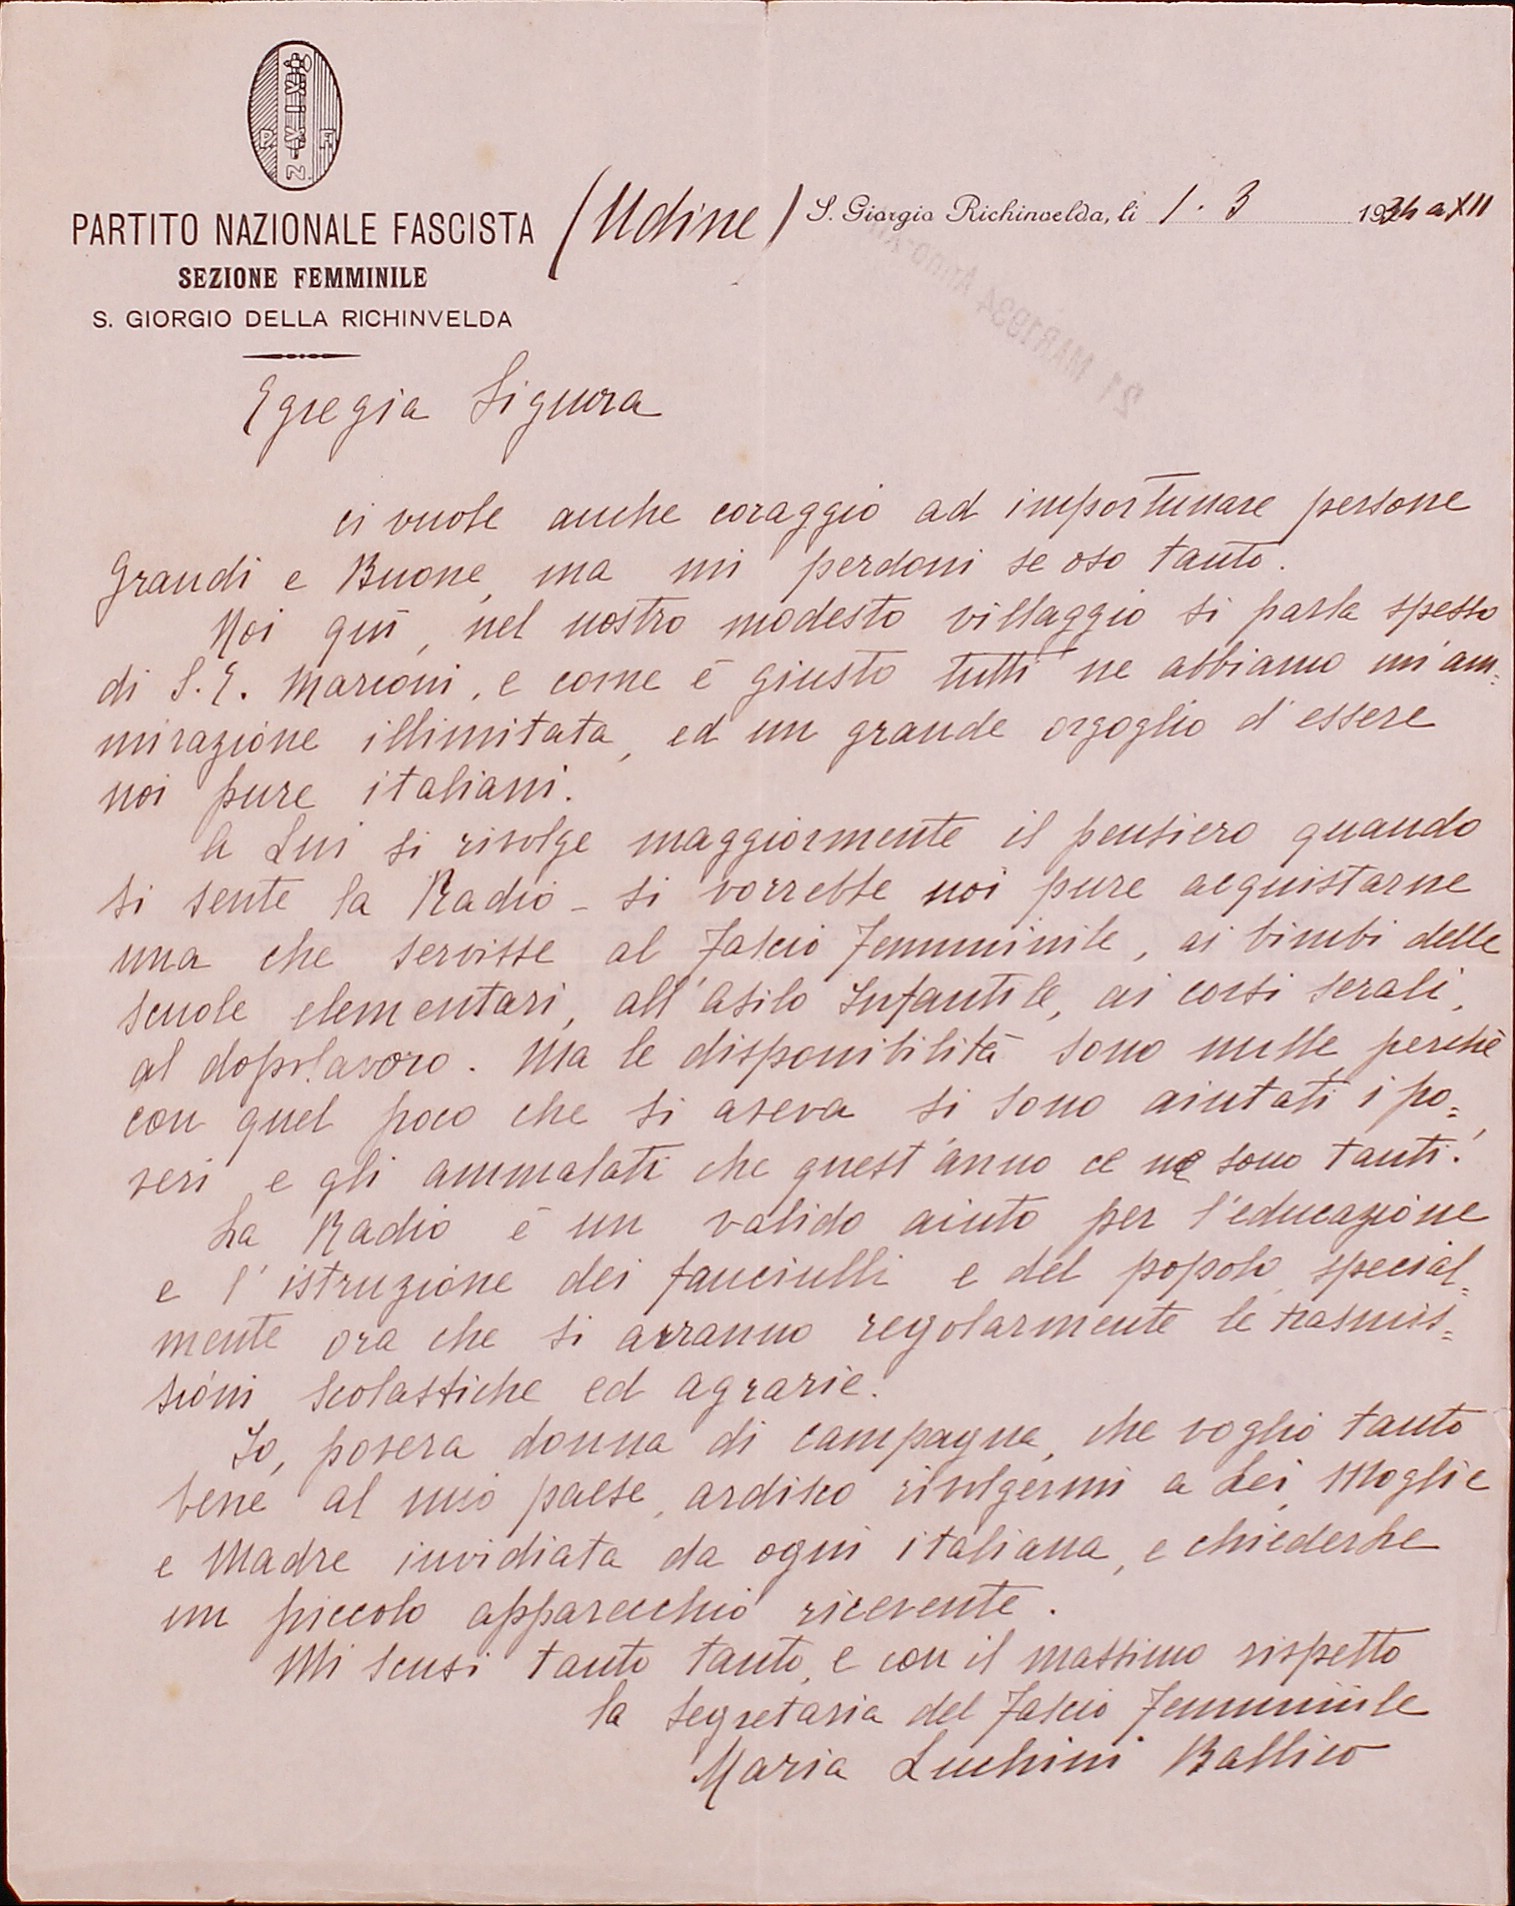 P. N. F.
PARTITO NAZIONALE FASCISTA
SEZIONE FEMMINILE
S. GIORGIO DELLA RICHINVELDA
(Udine) S. Giorgio Richinvelda, li 1. 3 1934 a XII
21 MAR 1934 Anno
Egregia Signora
ci vuole anche coraggio ad importunare persone
Grandi e Buone, ma mi perdoni se oso tanto.
Noi quì, nel nostro modesto villaggio si parla spesso
di S. E. Marconi, e come è giusto tutti ne abbiamo un'am=
mirazione illimitata, ed un grande orgoglio d'essere
noi pure italiani.
A Lui si rivolge maggiormente il pensiero quando
si sente la Radio - si vorrebbe noi pure acquistarne
una che servisse al Fascio Femminile, ai bimbi delle
scuole elementari, all'Asilo Infantile, ai corsi serali,
al dopolavoro. Ma le disponibilità sono nulle perchè
con quel poco che si aveva si sono aiutati i po=
veri e gli ammalati che quest'anno ce ne sono tanti!
La Radio è un valido aiuto per l'educazione
e l'istruzione dei fanciulli e del popolo, special=
mente ora che si avranno regolarmente le trasmis=
sioni scolastiche ed agrarie.
Io, povera donna di campagna, che voglio tanto
bene al mio paese, ardisco rivolgermi a Lei, Moglie
e Madre invidiata da ogni italiana, e chiederLe
un piccolo apparecchio ricevente.
Mi scusi tanto tanto, e con il massimo rispetto
la segretaria del Fascio Femminile
Maria Luchini Ballico